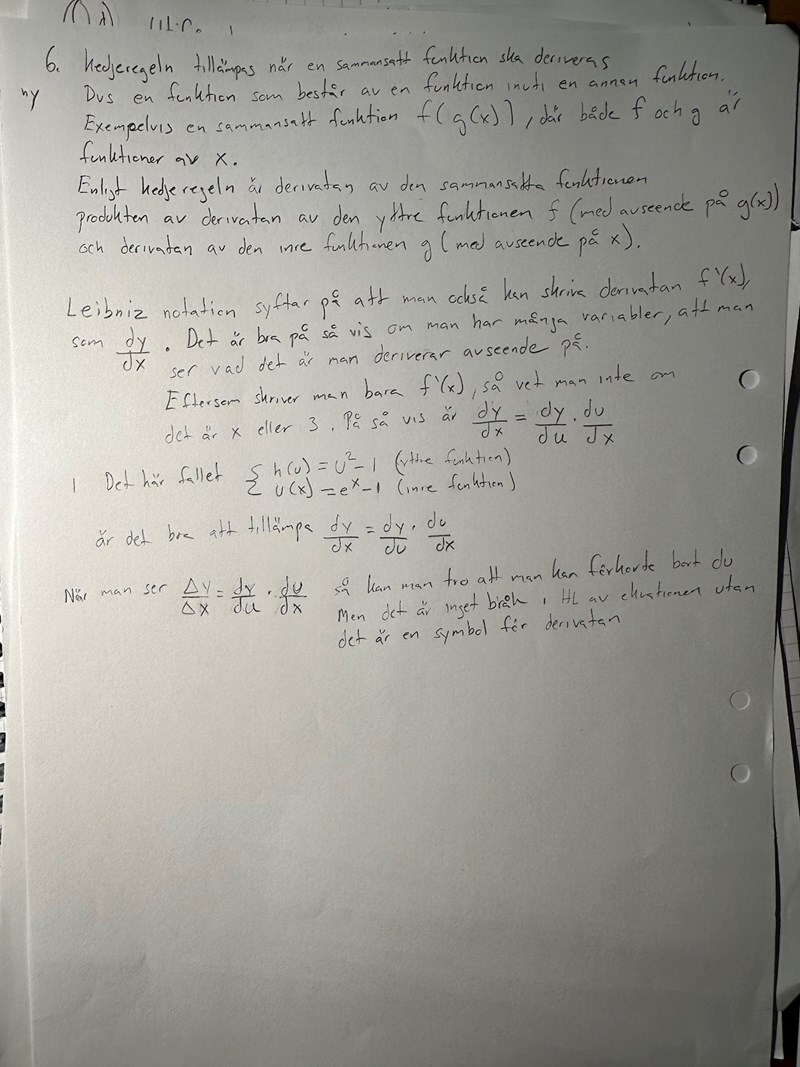 6. Kedjeregeln tillämpas när en sammansatt funktion ska deriveras
ny Dvs en funktion som består av en funktion inuti en annan funktion.
Exempelvis en sammansatt funktion f(g(x)), där både f och g är
funktioner av x.
Enligt kedjeregeln är derivatan av den sammansatta funktionen
produkten av derivatan av den yttre funktionen f (med avseende på g(x))
och derivatan av den inre funktionen g (med avseende på x).
Leibniz notation syftar på att man också kan skriva derivatan f'(x),
som dy/dx. Det är bra på så vis om man har många variabler, att man
ser vad det är man deriverar avseende på.
Eftersom skriver man bara f'(x), så vet man inte om
det är x eller 3. På så vis är dy/dx = dy/du · du/dx
I Det här fallet { h(u) = u²-1 (yttre funktion)
u(x) = eˣ-1 (inre funktion)
är det bra att tillämpa dy/dx = dy/du · du/dx
När man ser Δy/Δx = dy/du · du/dx så kan man tro att man kan förkorta bort du
Men det är inget bråk i HL av ekvationen utan
det är en symbol för derivatan